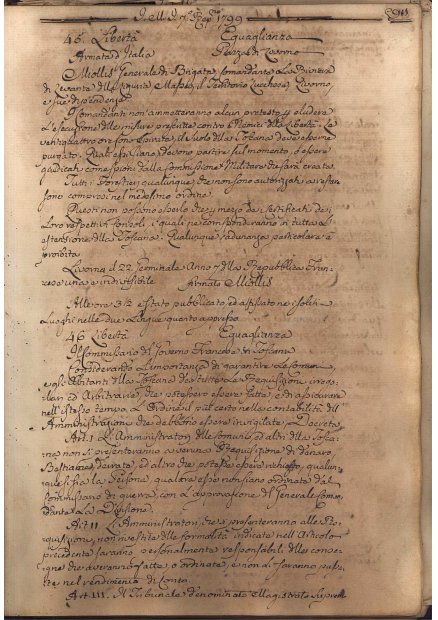 1799
46. Libertà Eguaglianza
Armata d'Italia Piazza di Livorno
Miollis Generale di Brigata Comandante la Riviera
di Levante, Massa, il Territorio Lucchese, Livorno,
e sue dipendenze
Comandanti non ammetteranno alcun pretesto
l'esecuzione delle misure prescritte contro i Nemici della Libertà. Le
ventiquattro ore sono spirate, il suolo della Toscana deve esserne
purgato. devono partire sul momento, o essere
giudicati come spioni dalla Commissione Militare che sarà creata.
Tutti i Forestieri qualunque che non sono autorizzati a restare
sono compresi nel medesimo ordine.
Questi non possono esserlo che per mezzo dei Certificati dei
loro respettivi Consoli, i quali ne risponderanno
della Toscana. Qualunque radunanza particolare è
proibita.
Livorno il 22 Germinale Anno 7 della Repubblica Fran-
cese una e indivisibile Firmato Miollis
Alle ore 3 1/2 è stato pubblicato ed affisso nei soliti
Luoghi nelle due Lingue quanto appresso
46 Libertà Eguaglianza
Il Commissario del Governo Francese in Toscana
Considerando l'importanza di garantire le Comuni,
e gli Abitanti della Toscana da tutte le Requisizioni irrego-
lari ed Arbitrarie che potessero essere fatte, e di assicurare
nell'istesso tempo l'Ordine il più certo nella contabilità del
Amministrazioni che debbono essere invigilate, Decreta
Art. I. L'Amministratori delle Comuni ed altri della Tosca-
na non si presteranno a veruna Requisizione di denaro,
Bestiame, derrate, ed altro che potesse essere richiesto, qualun-
que si sia la Persona, qualora esse non siano ordinate dal
Commissario di guerra, con l'approvazione del Generale Coman-
dante la Divisione.
Art. II. Gli Amministratori, che si presteranno alle Re-
quisizioni, non rivestite delle formalità indicate nell'Articolo
precedente saranno personalmente responsabili delle conse-
gne che averanno fatte, o ordinate, e non gli saranno
nel rendimento di Conto.
Art. III. Il Tribunale denominato Magistrato Supremo